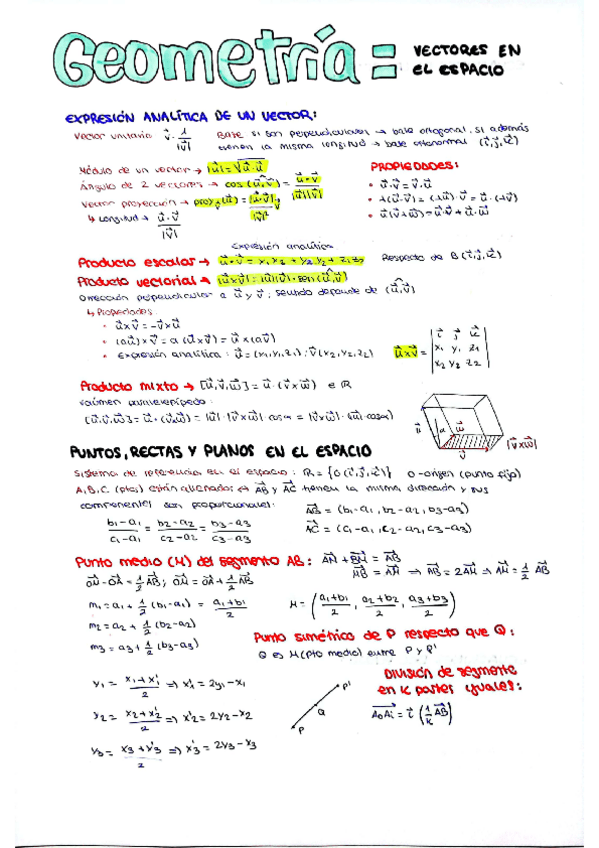 Geometría = VECTORES EN
EL ESPACIO
EXPRESIÓN ANALÍTICA DE UN VECTOR:
Vector unitario v⃗ · 1/|v⃗| Base si son perpendiculares → base ortogonal, si además
tienen la misma longitud → base ortonormal (i⃗, j⃗, k⃗)
Módulo de un vector → |u⃗| = √(u⃗ · u⃗)
Ángulo de 2 vectores → cos (u⃗, v⃗) = u⃗ · v⃗ / |u⃗||v⃗|
Vector proyección →
↳ Longitud → u⃗ · v⃗ / |v⃗|
PROPIEDADES:
• u⃗ · v⃗ = v⃗ · u⃗
• u⃗(v⃗ + w⃗) = u⃗ · v⃗ + u⃗ · w⃗
Expresión analítica
Producto escalar → u⃗ · v⃗ = x₁ x₂ + y₁ y₂ + z₁ z₂ Respecto de B (i⃗, j⃗, k⃗)
Producto vectorial → |u⃗ x v⃗| = |u⃗||v⃗| · sen (u⃗, v⃗)
Dirección perpendicular a u⃗ y v⃗; sentido depende de (u⃗, v⃗)
↳ Propiedades
• u⃗ x v⃗ = -v⃗ x u⃗
• (au⃗) x v⃗ = a (u⃗ x v⃗) = u⃗ x (av⃗)
• Expresión analítica: u⃗ = (x₁, y₁, z₁); v⃗ (x₂, y₂, z₂) u⃗ x v⃗ = | i⃗ j⃗ k⃗ |
| x₁ y₁ z₁ |
| x₂ y₂ z₂ |
Producto mixto → [u⃗, v⃗, w⃗] = u⃗ · (v⃗ x w⃗) ∈ ℝ
volúmen paralelepípedo:
[u⃗, v⃗, w⃗] = u⃗ · (v⃗ x w⃗) = |u⃗| · |v⃗ x w⃗| cos α = |v⃗ x w⃗| · (|u⃗| · cos α)
u⃗ α w⃗ v⃗ |v⃗ x w⃗|
PUNTOS, RECTAS Y PLANOS EN EL ESPACIO
Sistema de referencia en el espacio: R = {O (i⃗, j⃗, k⃗)} O → origen (punto fijo)
A, B, C (ptos) están alineados ⇔ AB⃗ y AC⃗ tienen la misma dirección y sus
componentes son proporcionales: AB⃗ = (b₁-a₁, b₂-a₂, b₃-a₃)
b₁-a₁/c₁-a₁ = b₂-a₂/c₂-a₂ = b₃-a₃/c₃-a₃ AC⃗ = (c₁-a₁, c₂-a₂, c₃-a₃)
Punto medio (M) del segmento AB: AM⃗ + BM⃗ = AB⃗
MB⃗ = AM⃗ ⇒ AB⃗ = 2AM⃗ ⇒ AM⃗ = 1/2 AB⃗
OM⃗ - OA⃗ = 1/2 AB⃗; OM⃗ = OA⃗ + 1/2 AB⃗
m₁ = a₁ + 1/2 (b₁-a₁) = a₁+b₁/2
M = (a₁+b₁/2, a₂+b₂/2, a₃+b₃/2)
m₂ = a₂ + 1/2 (b₂-a₂)
m₃ = a₃ + 1/2 (b₃-a₃)
Punto simétrico de P respecto que Q:
Q es M (pto medio) entre P y P'
y₁ = x₁+x'₁/2 ⇒ x'₁ = 2y₁-x₁
y₂ = x₂+x'₂/2 ⇒ x'₂ = 2y₂-x₂
y₃ = x₃+x'₃/2 ⇒ x'₃ = 2y₃-x₃
P' Q P
División de segmento
en K partes iguales:
A₀Aᵢ⃗ = i (1/K AB⃗)